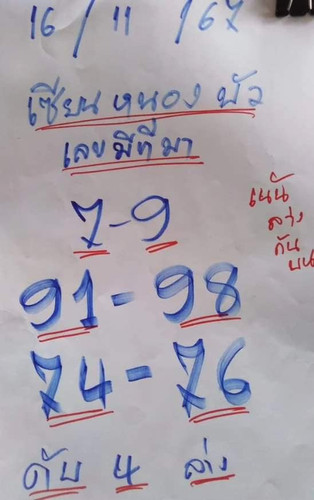 16 / 11 / 67
เซียนหนองบัว
เลขมีที่มา
7-9
เน้น
ล่าง
กัน
บน
91-98
74-76
ดับ 4 ล่าง